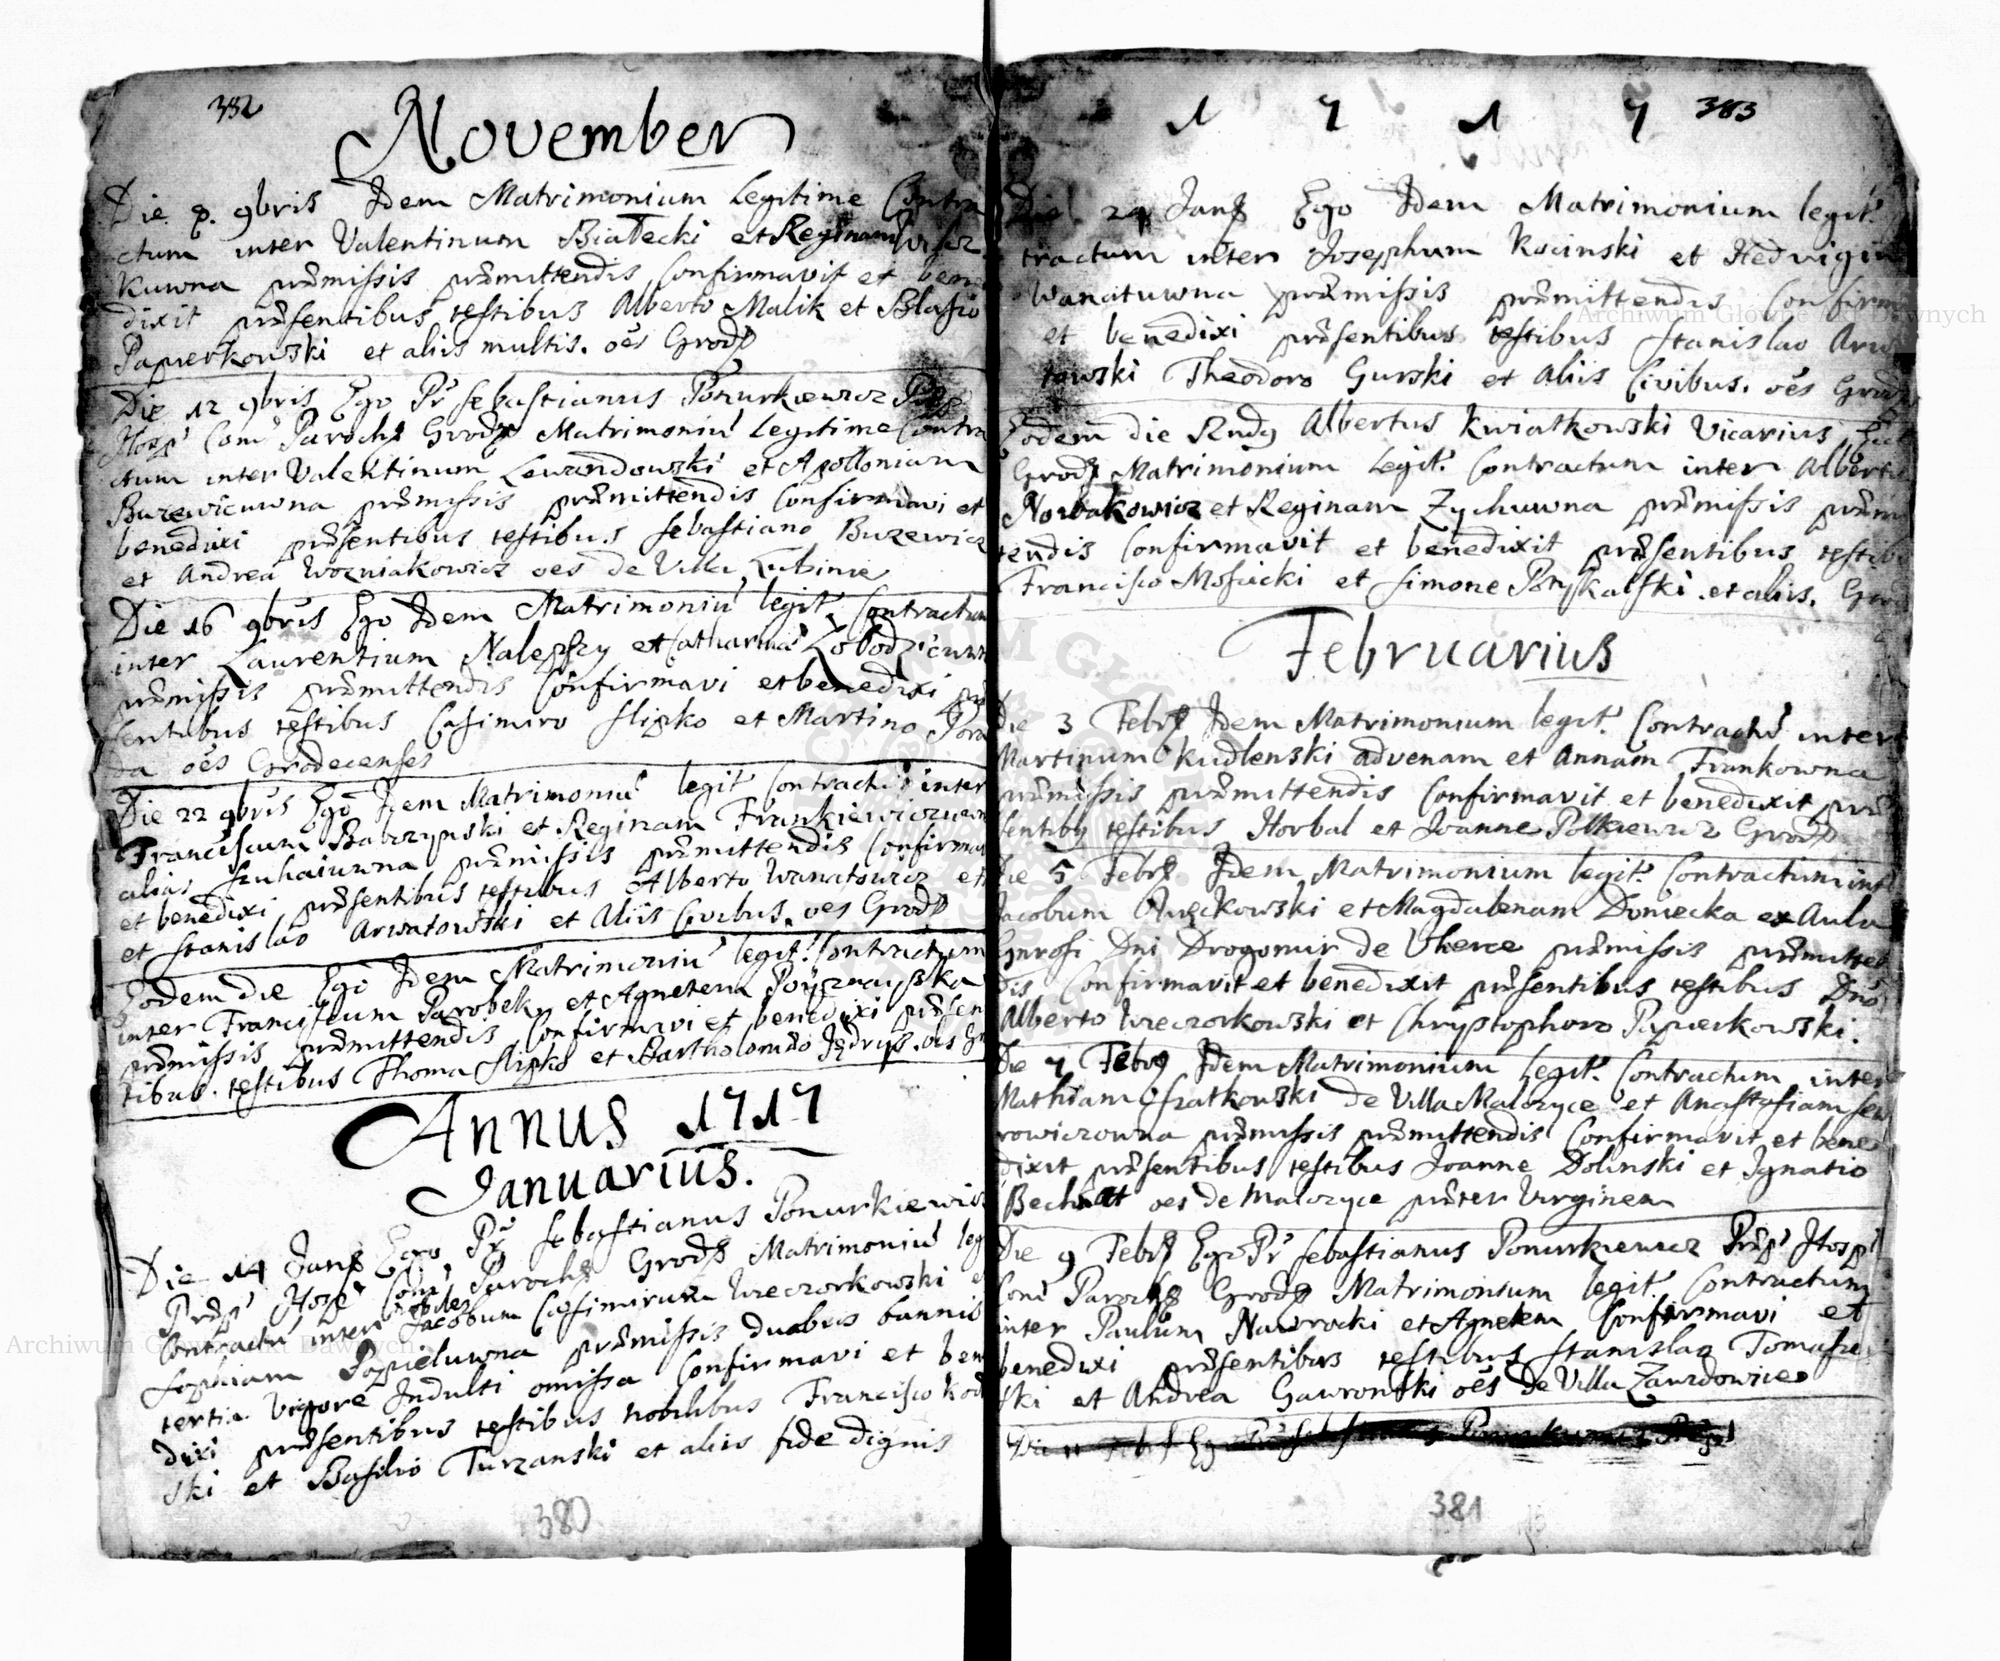 382
November
Die 8. 9bris Idem Matrimonium legitime Contra
ctum inter Valentinum Białecki et Reginam
kuwna præmissis præmittendis Confirmavit et bene
dixit præsentibus testibus Alberto Malik et Blasio
Papierkowski et aliis multis. oēs Grod
Die 12 9bris Ego Pr Sebastianus Ponurkiewicz
Hosp Com Paroch Grod Matrimoniū legitime Contra
ctum inter Valentinum Lewandowski et Apolloniam
Buzewicuwna præmissis præmittendis Confirmavi et
benedixi præsentibus testibus Sebastiano Buzewicz
et Andrea Wozniakowicz oes de Villa Lubinie
Die 16 9bris Ego Idem Matrimoniū legit Contractum
inter Laurentium Nalepszy et Catharinā
præmissis præmittendis Confirmavi et benedixi præ
sentibus testibus Casimiro Slipko et Martino Pora
da oēs Grodecenses
Die 22 9bris Ego Idem Matrimoniū legit Contractū inter
Franciscum et Reginam
alias præmissis præmittendis Confirmavi
et benedixi præsentibus testibus Alberto Wanatowicz et
et Stanislao Arwatowski et Aliis Civibus. oes Grod
Eodem die Ego Idem Matrimoniū legit. Contractum
inter Franciscum Parobek et Agnetem
præmissis præmittendis Confirmavi et benedixi præsen
tibus testibus Thoma Slipko et Bartholomæo oes
Annus 1717
Januarius.
Die 14 Jan Ego Pr Sebastianus Ponurkiewicz
Præp Hosp Com Paroch Grod Matrimoniū leg
Contractū inter Nobiles Jacobum Casimirum Wieczorkowski
Sophiam Popieluwna præmissis duobus bannis
tertia vigore Indulti omissa Confirmavi et bene
dixi præsentibus testibus nobilibus Francisco
ski et Basilio Turzanski et aliis fide dignis
380
1 7 1 7 383
Die 24 Jan Ego Idem Matrimonium legit.
tractum inter Josephum Kocinski et Hedvigim
Wanatuwna præmissis præmittendis Confirm
et benedixi præsentibus testibus Stanislao Arwa
towski Theodoro Gurski et Aliis Civibus. oēs Grod
Eodem die Rnd9 Albertus Kwiatkowski Vicarius
Grod Matrimonium Legit. Contractum inter Albertu
et Reginam Zychuwna præmissis præmi
tendis Confirmavit et benedixit præsentibus testibu
Francisco Mosucki et Simone et aliis.
Februarius
Die 3 Febr Idem Matrimonium legit. Contractū inter
Martinum Kudlenski advenam et Annam Frankowna
præmissis præmittendis Confirmavit et benedixit præ
sentib9 testibus Horbal et Joanne Polkiewicz Grod
Die 5 Febr Idem Matrimonium legit. Contractum int
Jacobum et Magdalenam Doniecka ex Aula
Gnrosi Dni Drogomir de Vherce præmissis præmitten
dis Confirmavit et benedixit præsentibus testibus Dno
Alberto Wieczorkowski et Chrystophoro Papierkowski.
Die 7 Febr Idem Matrimonium Legit. Contractum inter
Mathiam Szatkowski de Villa Malczyce et Anastasiam Sen
rowiczowna præmissis præmittendis Confirmavit et bene
dixit præsentibus testibus Joanne Dolinski et Ignatio
oes de Malczyce præter Virginem
Die 9 Febr Ego Pr Sebastianus Ponurkiewicz Præp Hosp
Com Paroch Grod Matrimonium legit Contractum
inter Paulum Nawrocki et Agnetem Confirmavi et
benedixi præsentibus testibus Stanislao Tomasze
ski et Andrea Gawronski oēs de Villa Zawidowice
381
Archiwum Główne Akt Dawnych
Archiwum Główne Akt Dawnych